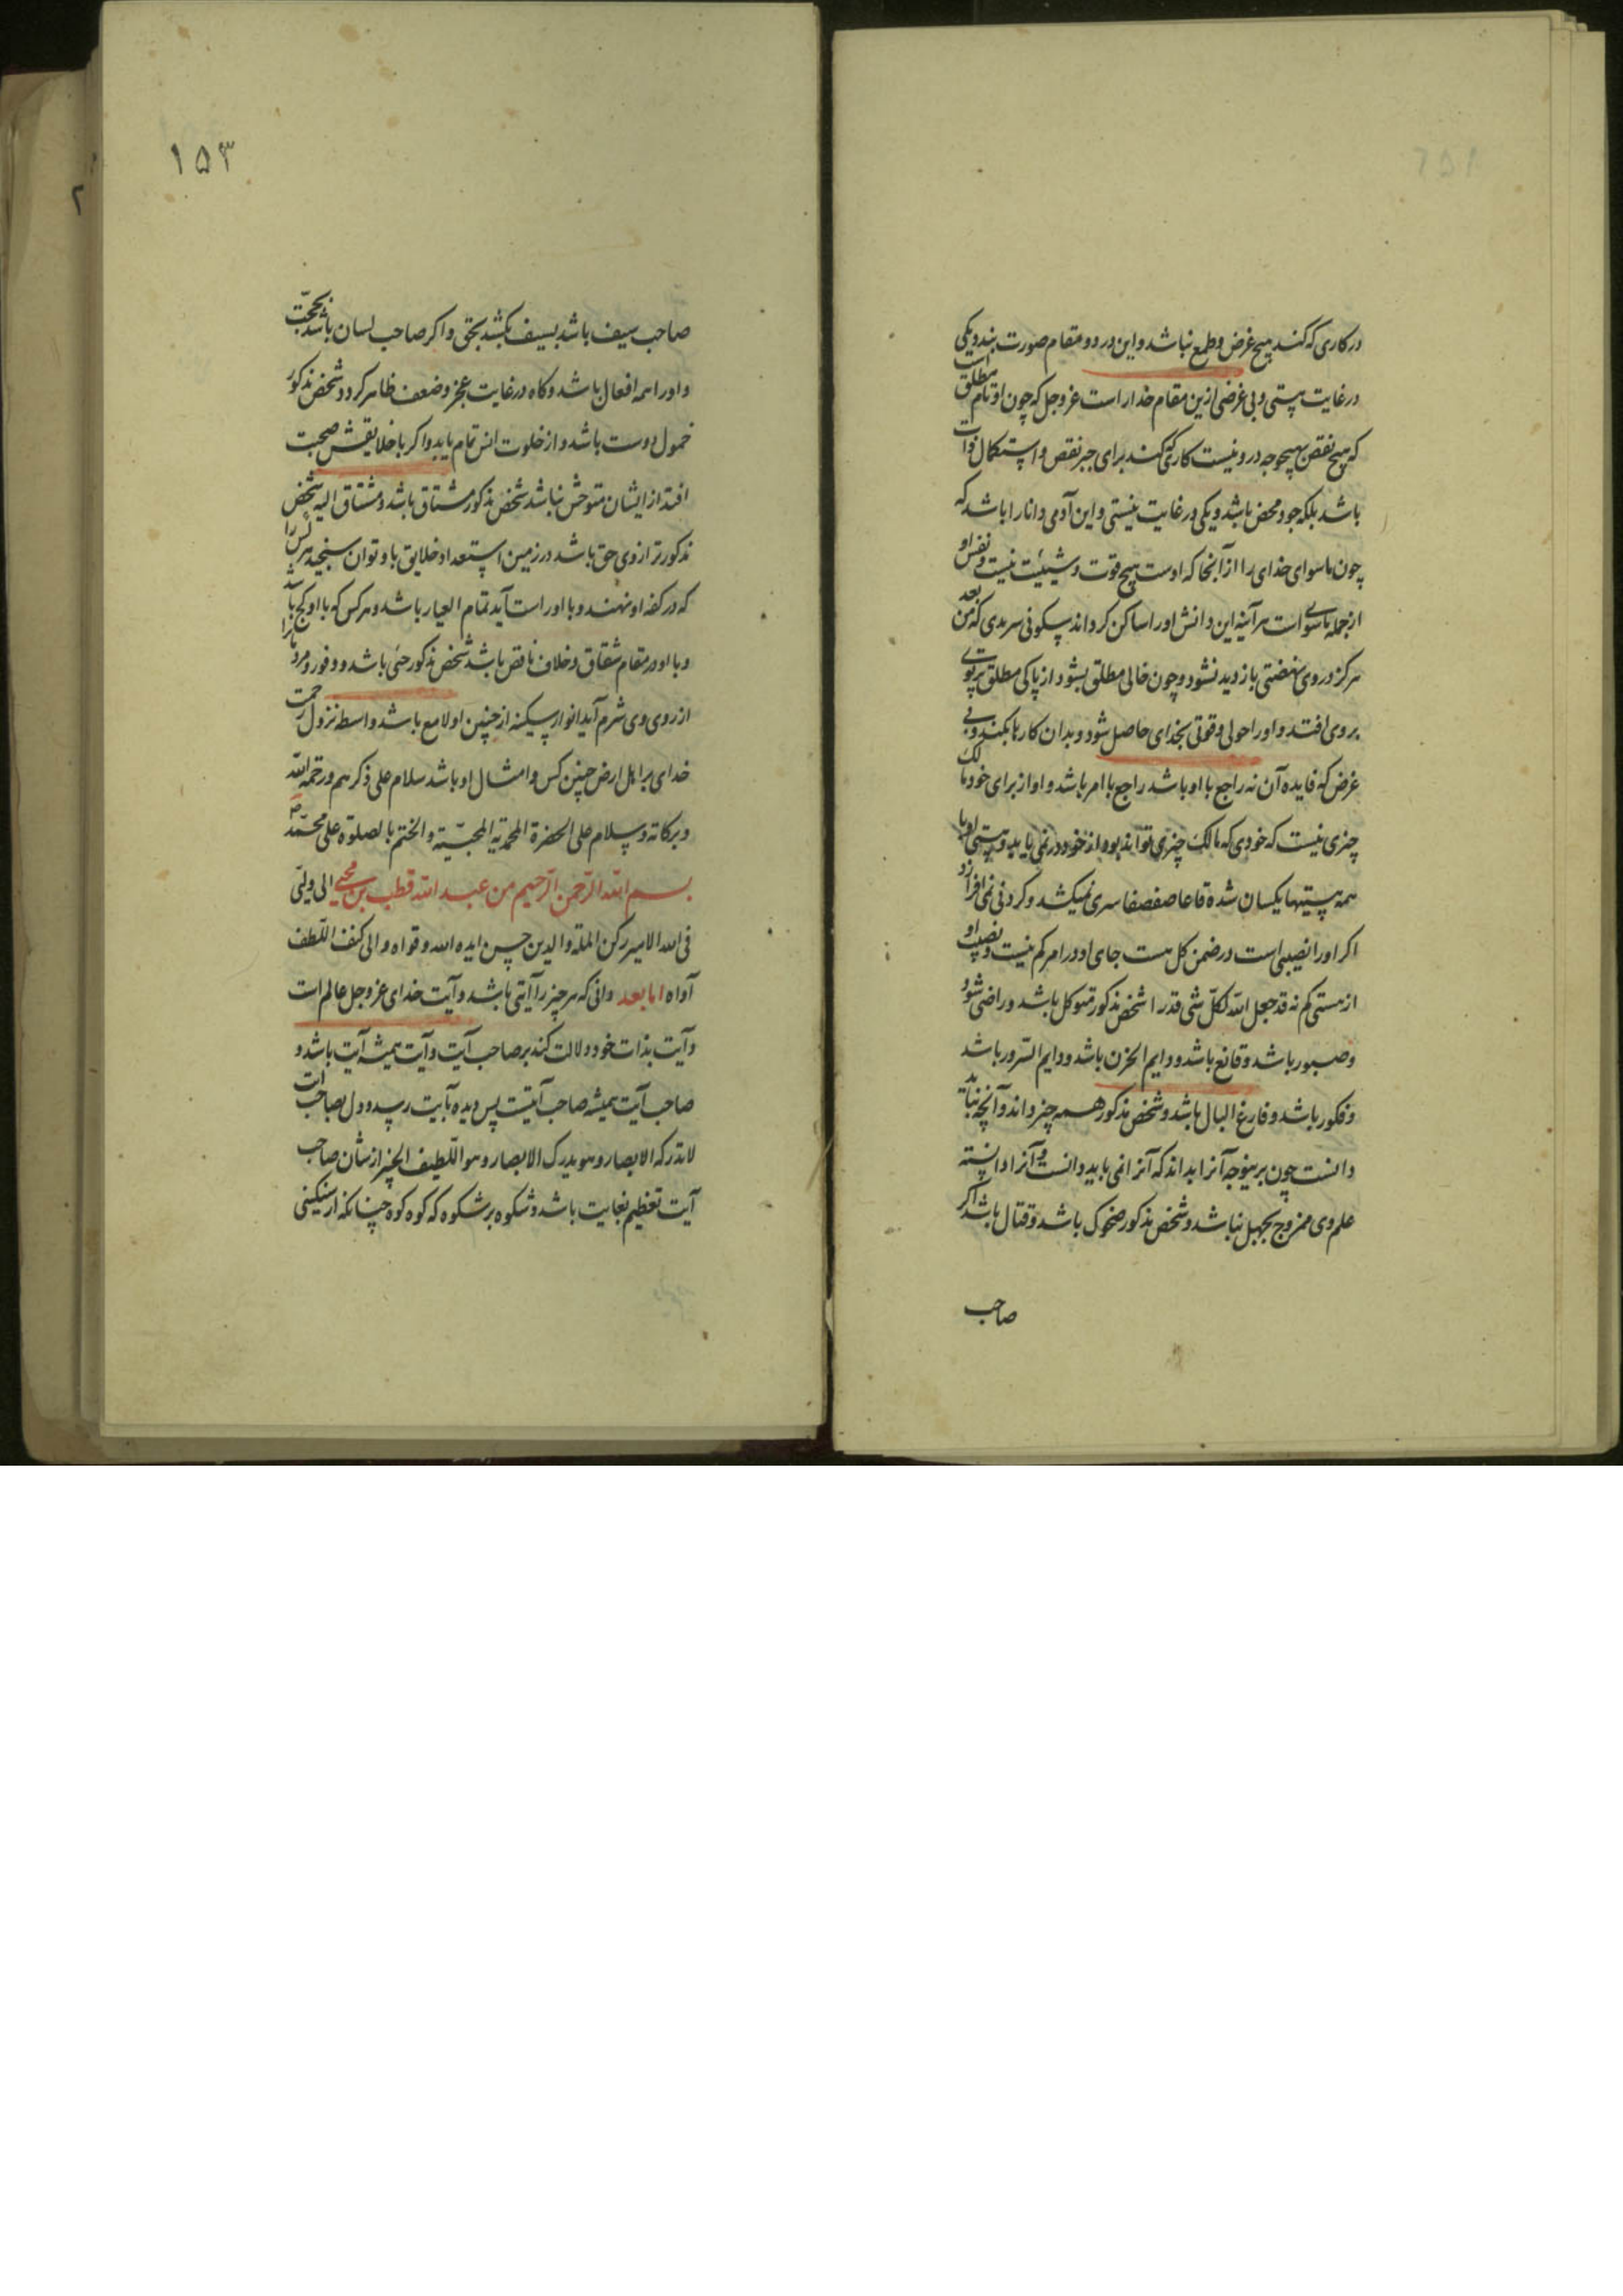 در کاری که کند هیچ غرض و طمع نباشد و این در دو مقام صورت بندد یکی
در غایت هستی و بی غرضی ازین مقام خدار است عز و جل که چون او تام مطلق است
که هیچ نقص بهیچوجه در و نیست کاری که کند برای جبر نقص و استکمال ذات
باشد بلکه جود محض باشد و یکی در غایت نیستی و این آدمی دانا را باشد که
چون ماسوای خدای را از آنجا که اوست هیچ قوت و شیئیت نیست و نفس او
از جمله ماسوی است هر آینه این دانش او را ساکن کرداند سکونی سرمدی که من بعد
هرکز در وی نهضتی بازدید نشود و چون خالی مطلق بشود از پاکی مطلق پرتوی
بروی افتد و او را حولی و قوتی بخدای حاصل شود و بدان کارها بکند و بی
غرض که فایده آن نه راجع با او باشد راجع با امر باشد و او از برای خود مالک
چیزی نیست که خودی که مالک چیزی تواند بود از خود در نمی یابد و هستی او با
همه هستیها یکسان شده قاعا صفصفا سری نمیکشد و کردنی نمی افرازد
اکر او را نصیبی است در ضمن کل هست جای او در امر کم نیست و نصیب او
از هستی کم نه قد جعل الله لکل شی قدرا شخص مذکور متوکل باشد و راضی شود
و صبور باشد و قانع باشد و دایم الحزن باشد و دایم السرور باشد
و فکور باشد و فارغ البال باشد و شخص مذکور همه چیز داند و آنچه نباید
دانست چون برینوجه آنرا بداند که آنرا نمی باید دانست و آنرا دانسته
علم وی ممزوج بجهل نباشد و شخص مذکور ضحوک باشد و قتال باشد اکر
صاحب
۱۵۳
صاحب سیف باشد بسیف بکشد بحق و اکر صاحب لسان باشد بحجت
و او را همه افعال باشد و کاه در غایت عجز و ضعف ظاهر کردد شخص مذکور
خمول دوست باشد و از خلوت انس تمام یابد و اکر با خلایقش صحبت
افتد از ایشان متوحش نباشد شخص مذکور مشتاق باشد و مشتاق الیه شخص
مذکور ترازوی حق باشد در زمین استعداد خلایق باو توان سنجید هر کس را
که در کفه او نهند و با او راست آید تمام العیار باشد و هر کس که با او کج باشد
و با او در مقام شقاق و خلاف ناقص باشد شخص مذکور حیی باشد و وفور و مرد
از روی وی شرم آید انوار سکینه از جبین او لامع باشد واسطه نزول رحمت
خدای بر اهل ارض چنین کس و امثال او باشد سلام علی ذکرهم و رحمة الله
و برکاته و سلام علی الحضرة المحمدیه المحبیّة و الختم بالصلوة علی محمّد
بسم الله الرحمن الرحیم من عبد الله قطب بن محیی الی ولیّی
فی الله الامیر رکن الملة والدین حسن ایده الله و قواه و الی کنف اللطف
آواه اما بعد دانی که هر چیز را آیتی باشد و آیت خدای عز و جل عالم است
و آیت بذات خود دلالت کند بر صاحب آیت و آیت همیشه آیت باشد و
صاحب آیت همیشه صاحب آیتست پس دیده بآیت رسد و دل بصاحب آیت
لا تدرکه الابصار و هو یدرک الابصار و هو اللّطیف الخبیر از شان صاحب
آیت تعظیم بغایت باشد و شکوه بر شکوه که کوه کوه چنانکه از سنکینی